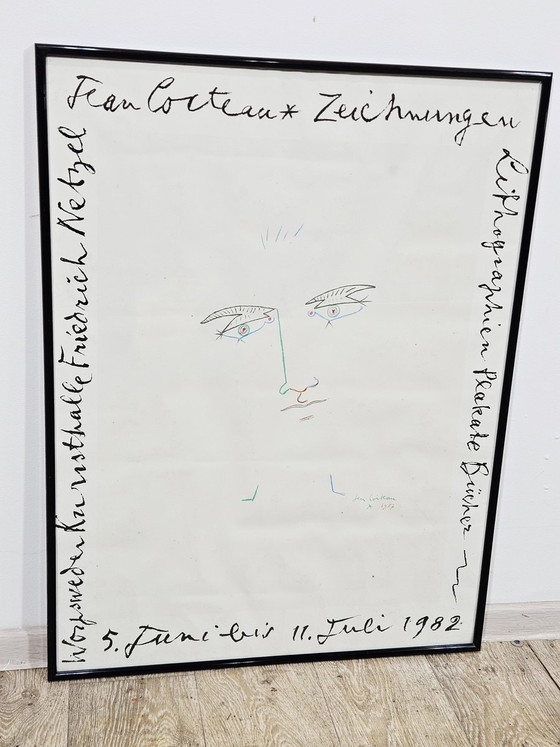 Jean Cocteau* Zeichnungen
Lithographien Plakate Bücher
5. Juni bis 11. Juli 1982
Worpsweder Kunsthalle Friedrich Netzel